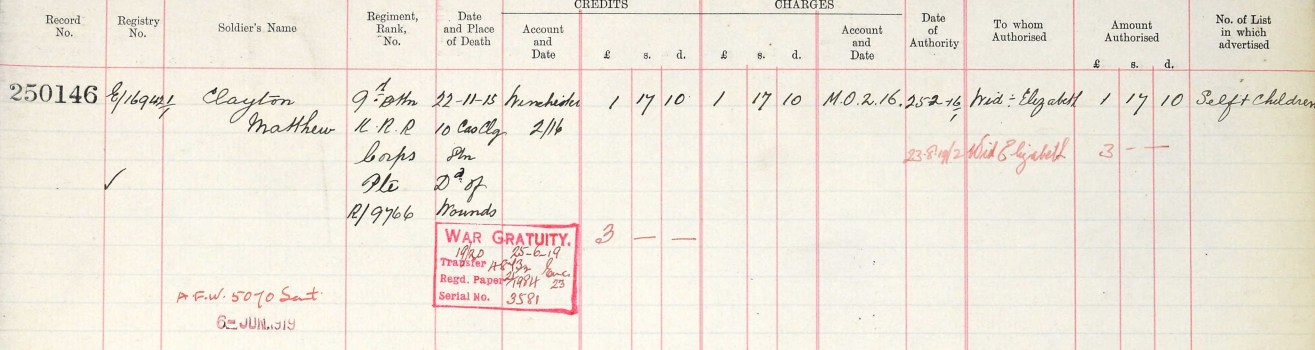 CREDITS CHARGES
Record No. Registry No. Soldier's Name Regiment, Rank, No. Date and Place of Death Account and Date £ s. d. £ s. d. Account and Date Date of Authority To whom Authorised Amount Authorised £ s. d. No. of List in which advertised
250146 Clayton 9th Bttn 22-11-15 Winchester 1 17 10 1 17 10 M.O. 2.16. Wid: Elizabeth 1 17 10 Self & Children
Matthew K. R. R 10 Cas Clg 2/16
Corps Stn 23.8.19 Wid Elizabeth 3 - -
✓ Pte Dd of
R/9766 Wounds
WAR GRATUITY. 3 — —
19/20 25-6-19
Transfer
Regd. Paper 23
Serial No. 3581
A.F.W. 5070 Sent
6-JUN.1919